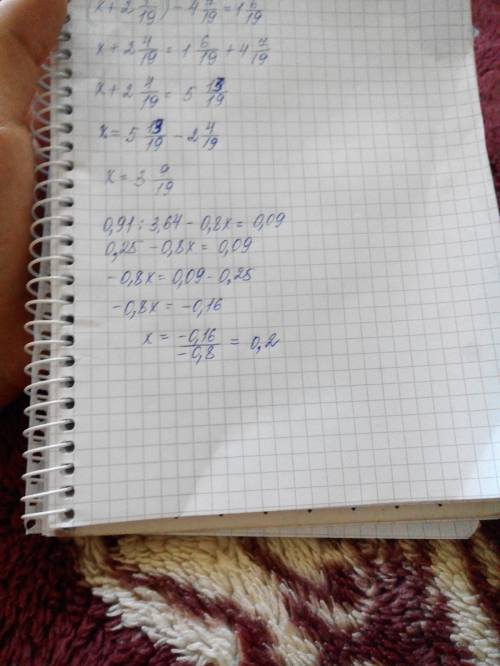 x + 2 4/19) - 4 7/19 = 1 6/19
x + 2 4/19 = 1 6/19 + 4 7/19
x + 2 4/19 = 5 13/19
x = 5 13/19 - 2 4/19
x = 3 9/19
0,91 : 3,64 - 0,8x = 0,09
0,25 - 0,8x = 0,09
-0,8x = 0,09 - 0,25
-0,8x = -0,16
x = -0,16/-0,8 = 0,2